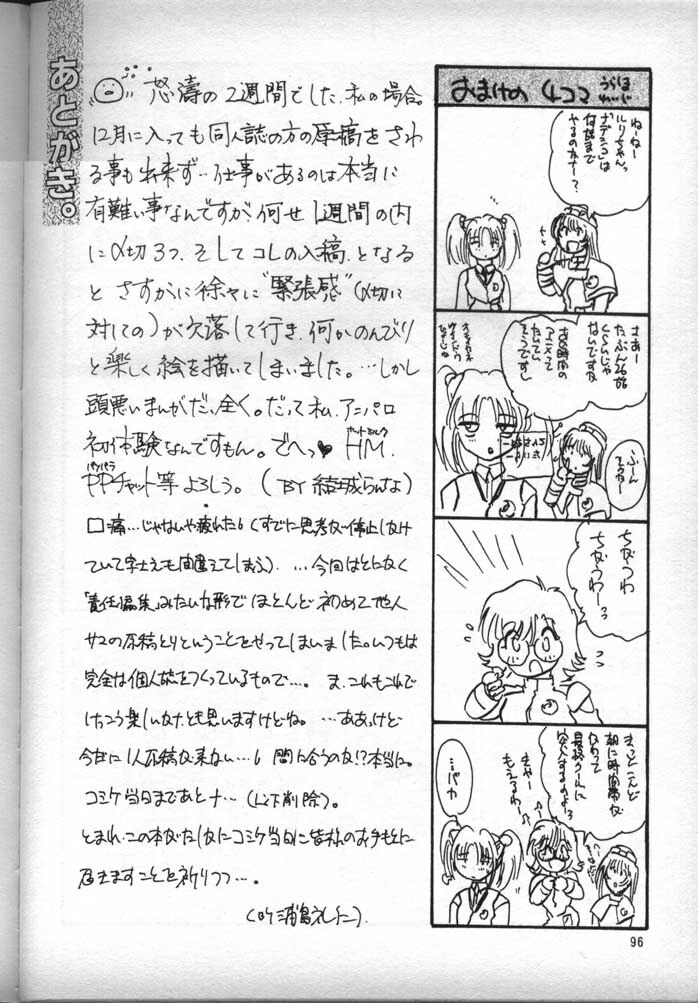 あとがき。
怒濤の2週間でした、私の場合。
12月に入っても同人誌の方の原稿をさわ
る事も出来ず…仕事があるのは本当に
有難い事なんですが、何せ1週間の内
に〆切3つ、そしてコレの入稿、となる
と さすがに徐々に"緊張感"(〆切に
対しての)が欠落して行き、何かのんびり
と楽しく絵を描いてしまいました。…しかし
頭悪いまんがだ、全く。だって私、アニパロ
初体験なんですもん。でへっ♥ HM.
ホットミルク
PPチャット等よろしう。(BY 結城らんな)
パパパラ
口痛…じゃないや疲れた
ていて字さえも間違えてしまふ)。…今回はとにかく
「責任編集」みたいな形でほとんど初めて他人
サマの原稿とりということをやってしまいました。いつもは
完全な個人誌をつくっているもので…。ま、これもこれで
けっこう楽しいなとも思いますけどね。…ああっけど
今だに1人原稿が来ない…6 間に合うのか!?本当に。
コミケ当日まであと十…(以下削除)。
とまれ、この本がたしかにコミケ当日に皆様のお手もとに
届きますことを祈りつつ…。
おまけの 4コマ
ねーねー
ルリちゃんっ
ナデシコは
何話まで
やるのかなー?
さあー
たぶん26話
くらいじゃ
ないですか
この時間の
アニメって
たいてい
そうですし
ふーん
ちがうわ
ちがうわーっ
きっとこんど
朝に時間帯が
かわって
最終クールに
突入するのよっ
きゃー
もえるわー
…バカ
96